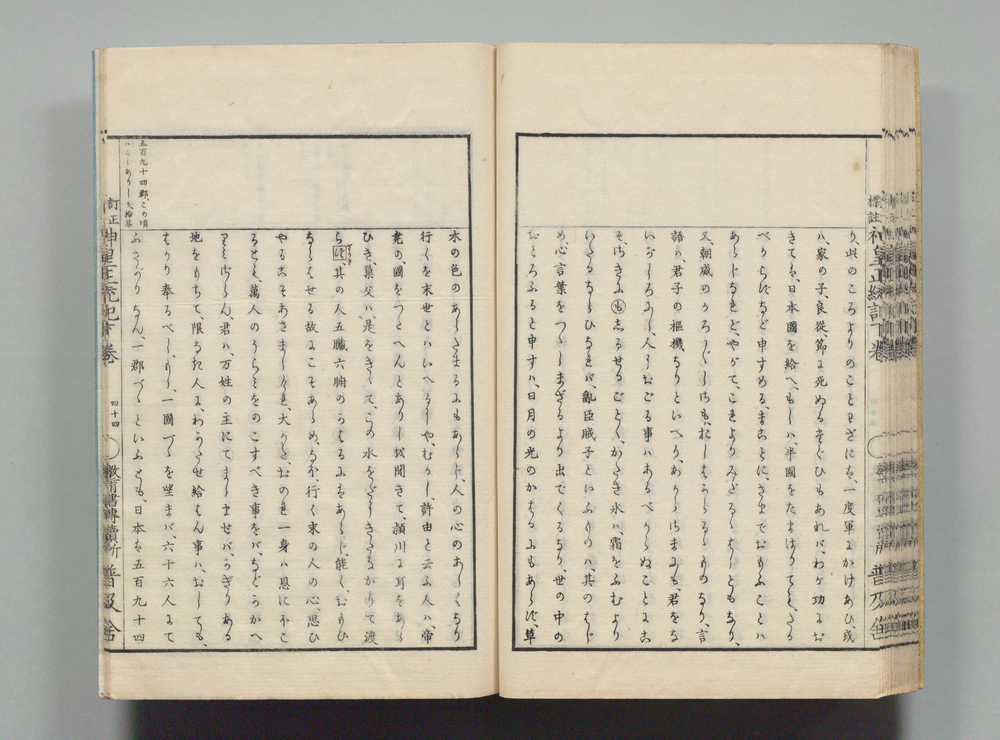 標註神皇正統記下巻
普及舎
り、此のころよりのことわざにハ、一度軍にかけあひ、或
ハ、家の子、良從節に死ぬるたぐひもあれバ、わが功にお
きてハ、日本國を給へ、もしハ、半國をたまはりてもたる
べからずなど申すめる、まことに、さまでおもふことハ
あらじなれど、やがて、これよりみだるるはしともなり、
又、朝威のかろがろしさも、おしはからるるものなり、言
語ハ、君子の樞機なりといへり、あからさまにも、君をな
いがしろにし、人におごる事ハあるべからぬことにこ
そ、さきにもしるせるごとく、かたき氷ハ、霜をふむより
いたるならひなれバ、亂臣賊子といふものハ、其のはじ
め、心言葉をつつしまざるより出でくるなり、世の中の
おとろふると申すハ、日月の光のかはるにもあらず、草
木の色のあらたまるにもあらじ、人の心のあしくなり
行くを末世とハいへるにや、むかし、許由と云ふ人ハ、帝
堯の、國をつたへんとありしを聞きて、潁川に耳をあら
ひき、巣父ハ、是をきゝて、この水をだにきたながりて渡
らず、其の人五臓六腑のかはるにはあらじ、能く、おもひ
ならはせる故にこそあらめ、なほ、行く末の人の心、思ひ
やるこそあさましけれ、大かた、おのれ一身ハ恩にほこ
るとも、萬人のうらみをのこすべき事をバ、などかかへ
りミざらん、君ハ、万姓の主にてましませバ、かぎりある
地をもちて、限りなき人に、わかたせ給はん事ハ、おしても、
はかり奉るべし、もし、一國づゝを望まバ、六十六人にて
ふさがりなん、一郡づゝといふとも、日本ハ五百九十四
五百九十四郡、この頃
訂正神皇正統記下巻
四十四
教育書專賣所 普及舎